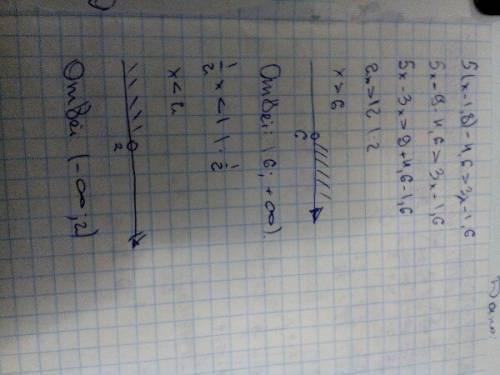 Дано:
5(x-1,8)-4,6>3x-1,6
5x-9-4,6>3x-1,6
5x-3x>9+4,6-1,6
2x>12 |:2
x>6
6
Ответ: (6; +∞).
1/2 x<1 |: 1/2
x<2
2
Ответ (-∞; 2)